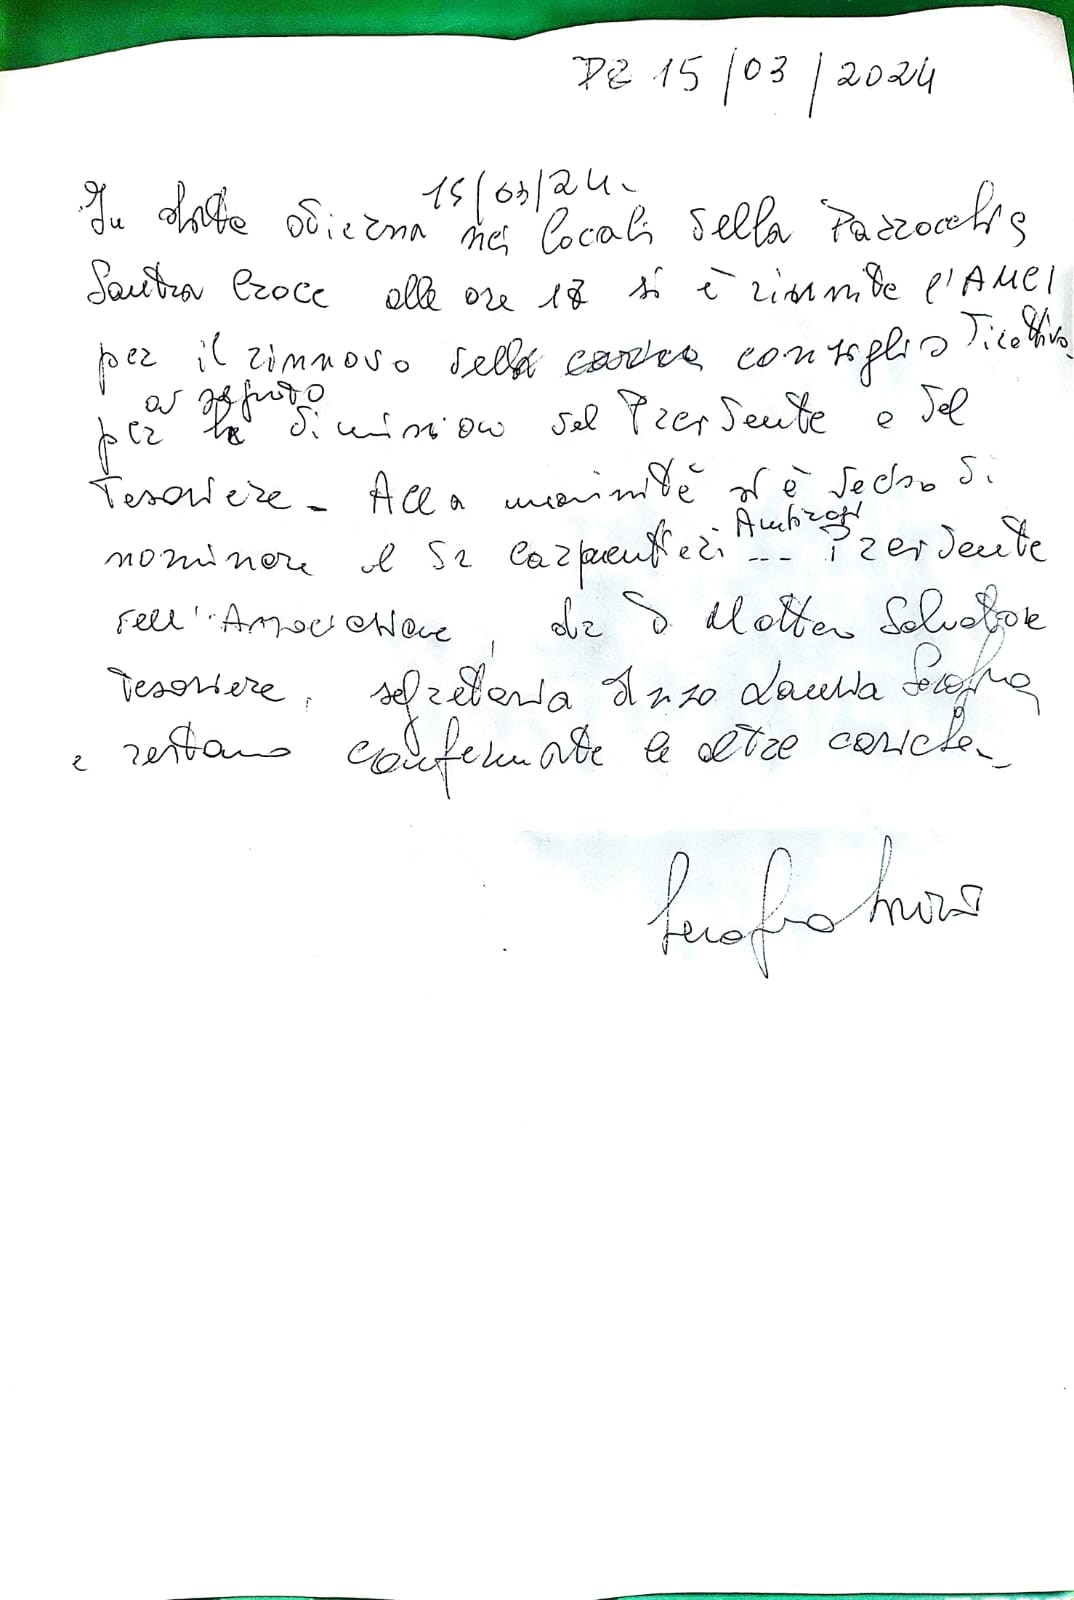 15/03/2024
In data odierna 15/03/24 nei locali della Parrocchia
Santa Croce alle ore 18 si è riunita l'AMCI
per il rinnovo del consiglio Direttivo
a seguito
per dimissioni del Presidente e del
Tesoriere - All'unanimità si è deciso di
nominare il Sr Carpentieri Ambrogi --- Presidente
dell'Associazione, Matteo Salvatore
Tesoriere, segretaria Serafina
e restano confermate le altre cariche
Serafina